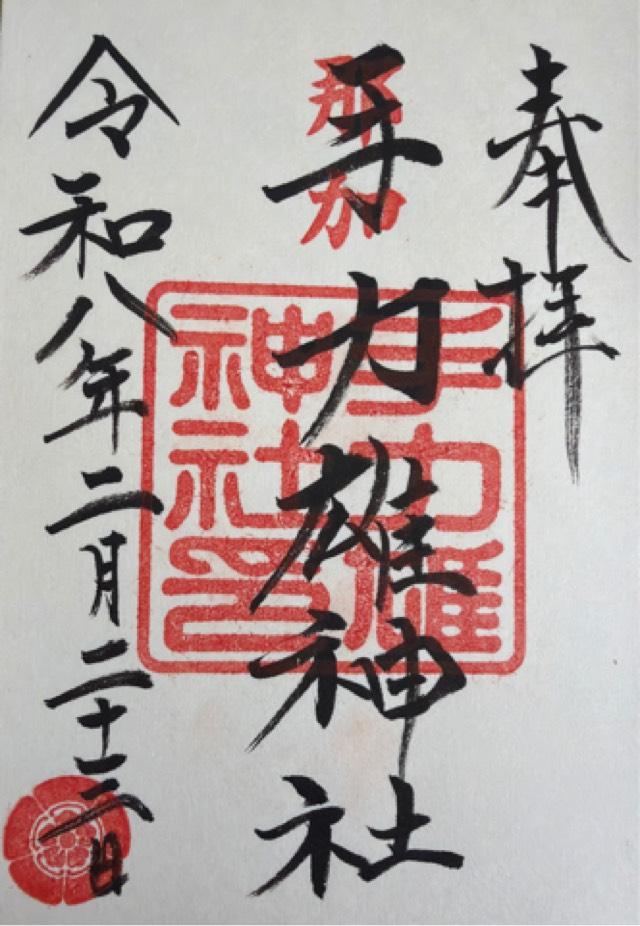 奉拝
那加
手力雄神社
手力雄
神社印
令和八年二月二十三日